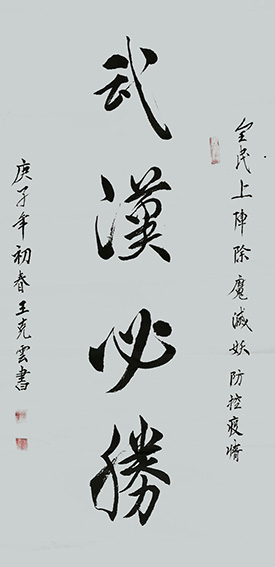 全民上陣除魔滅妖防控疫情
武漢必勝
庚子年初春王克雲書